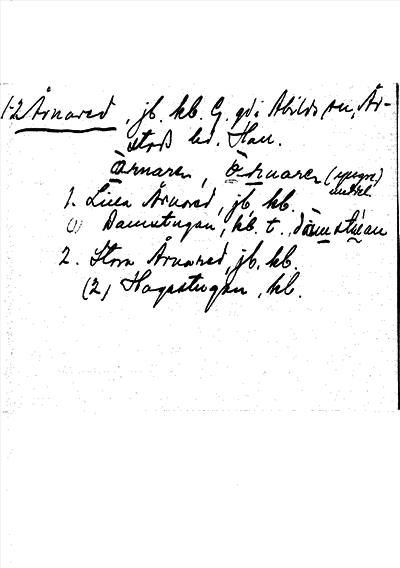 1-2 Årnared, jb. kb. G. gd i Abilds sn, År-
stads hd. Hall.
Òrnaren, Òrnaren (yngre)
1. Lilla Årnared, jb. kb.
(1) Dammstugan, kb. t. dàmstúan
2. Stora Årnared, jb. kb.
(2) Hagastugan, kb.